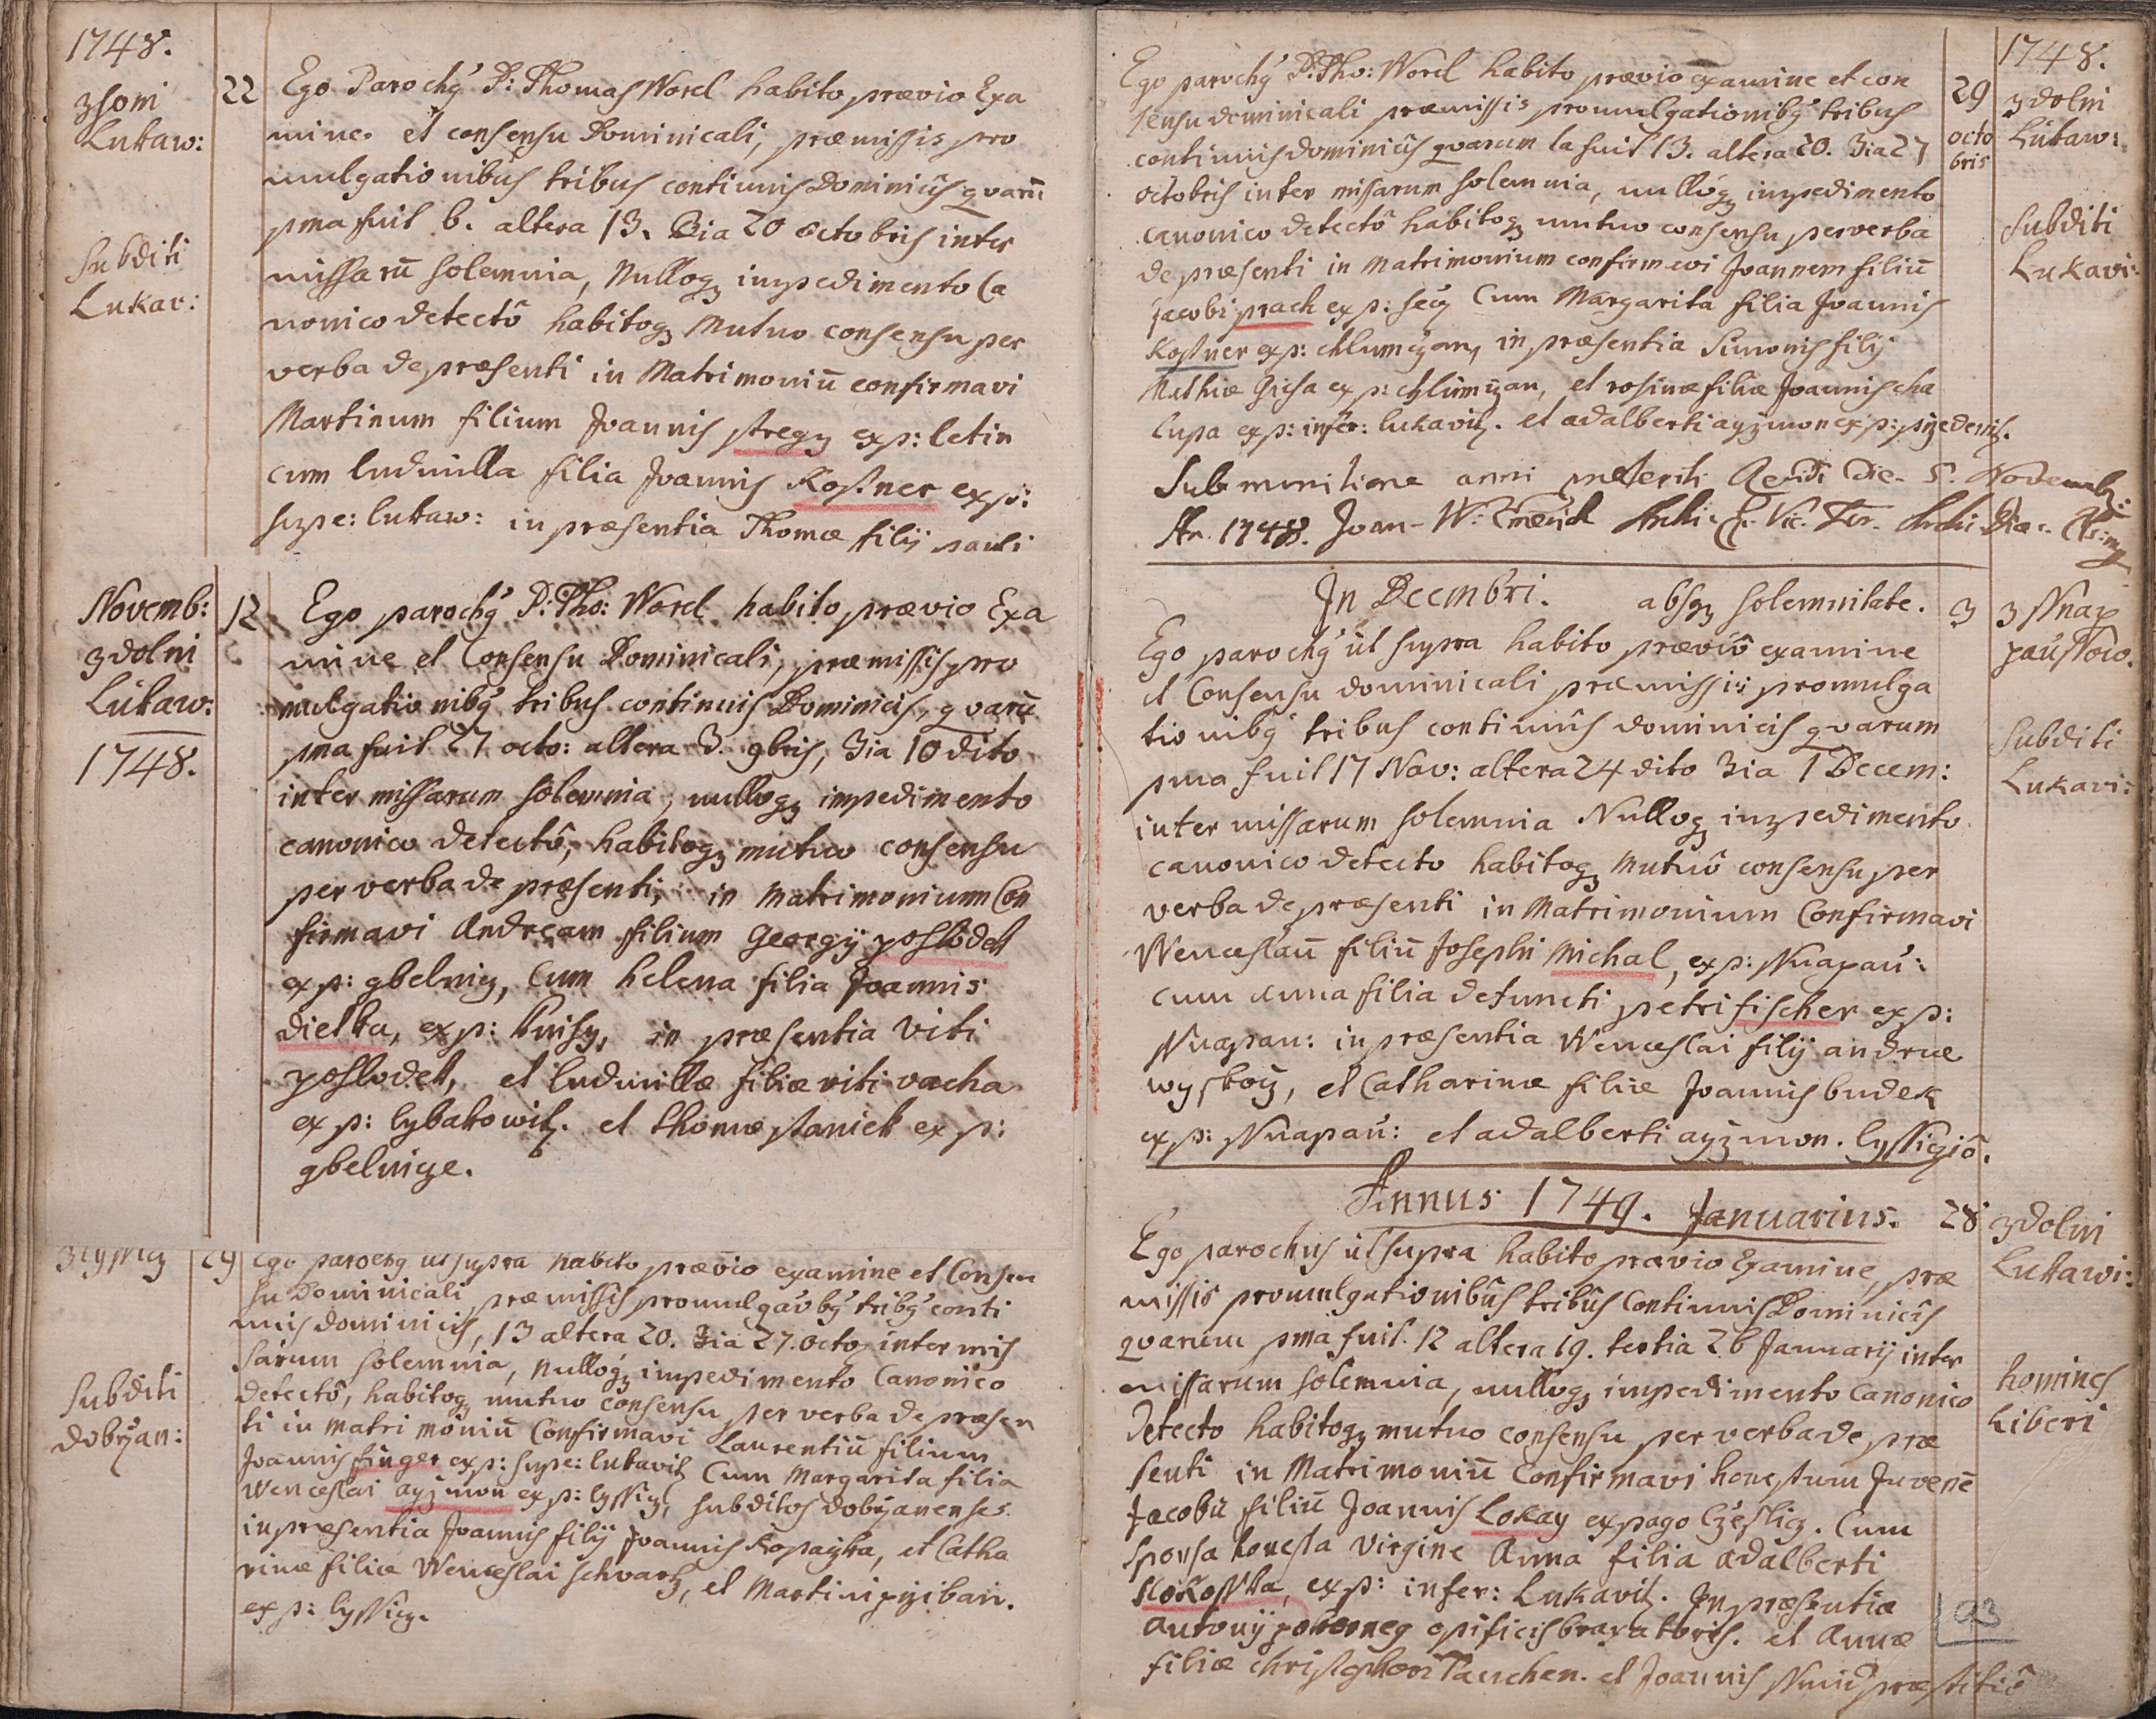 1748.
z Horni
Lukaw:
Subditi
Lukav:
22
Ego Parochg P: Thomas Worel habito prævio Exa
mine et consensu Dominicali, præmissis pro
mulgationibus tribus continuis Dominicis qvarū
pma fuit 6. altera 13. 3ia 20 octobris inter
missarū solemnia, Nulloq impedimento Ca
nonico detectô habitoq Mutuo consensu per
verba de præsenti in Matrimoniū confirmavi
Martinum filium Joannis stregz exp: letin
cum ludmilla filia Joannis Kostner exp:
supe: lukaw: in præsentia Thomæ filij pauli
Novemb:
z dolni
Lukaw:
1748.
12
Ego parochg P: Tho: Worel habito prævio Exa
mine et Consensu Dominicali, præmissis pro
mulgationibg tribus continuis Dominicis, qvarū
pma fuit 27 octo: altera 3. 9bris, 3ia 10 dito
inter missarum solemnia, nulloq impedimento
canonico detectô, habitoq mutuo consensu
per verba de præsenti, in Matrimonium Con
firmavi Andream filium Georgij poslodek
ex p: gbelniz, Cum helena filia Joannis
dielka, ex p: Knihy, in præsentia Viti
poslodek, et ludmillæ filiæ viti vacha
ex p: lybakowitz. et thomæ staniek ex p:
gbelnize.
29
Ego parochg ut supra habito prævio examine et Consen
su Dominicali præmissis promulgaõbg tribg conti
nuis dominicis, 13 altera 20. 3ia 27. octo inter mis
sarum solemnia, nulloq impedimento Canonico
detectô, habitoq mutuo consensu per verba de præsen
ti in matrimoniū Confirmavi Laurentiū filium
Joannis finger exp: supe: lukavitz Cum Margarita filia
Wenceslai ayzmon exp: lyssicz, subditos dobržanenses
in præsentia Joannis filij Joannis Kopaytka, et Catha
rinæ filiæ Wenceslai schvartz, et Martini pržibaň.
ex p: lyssicz.
Subditi
dobržan:
Ego parochg P: Tho: Worel habito prævio examine et con
sensu dominicali præmissis promulgationibg tribus
continuis dominicis qvarum 1a fuit 13. altera 20. 3ia 27
octobris inter missarum solemnia, nulloq impedimento
canonico detectô habitoq mutuo consensu per verba
de præsenti in Matrimonium confirmavi Joannem filiū
Jacobi prach ex p: secz Cum Margarita filia Joannis
Kostner ex p: chlumczan, in præsentia Simonis filij
Mathiæ Gicha ex p: chlumczan, et rosinæ filiæ Joannis cha
lupa ex p: infer: lukavitz. et adalberti ayzmon ex p: przedenitz.
29
octo
bris
1748.
z dolni
Lukaw:
Subditi
Lukavi:
Sub munitione anni præteriti die 5. Novemb:
An. 1748. Joan. W:
In Decembri. absq solemnitate.
3
z Snap
paussow.
Ego parochg ut supra habito præviô examine
et Consensu dominicali præmissis promulga
tionibg tribus continuis dominicis qvarum
pma fuit 17 Nov: altera 24 dito 3ia 1 Decem:
inter missarum solemnia Nulloq impedimento
canonico detecto habitoq Mutuô consensu per
verba de præsenti in Matrimonium Confirmavi
Wenceslaū filiū Josephi Michal, ex p: Snapau:
cum anna filia defuncti petri fischer ex p:
Snapau: in præsentia Wenceslai filij andreæ
wyskocz, et Catharinæ filiæ Joannis budek
ex p: Snapau: et adalberti ayzmon. lyssiczio.
Subditi
Lukavi:
Annus 1749. Januarius.
28
z dolni
Lukawi:
Ego parochus ut supra habito prævio Examine, præ
missis promulgationibus tribus Continuis Dominicis
qvarum pma fuit. 12 altera 19. tertia 26 Januarij inter
missarum solemnia, nulloq impedimento Canonico
detecto habitoq mutuo consensu per verba de præ
senti in Matrimoniū Confirmavi honestum Juvenē
Jacobū filiū Joannis Lokay ex pago Czeslicz. Cum
sponsa honesta Virgine Anna filia adalberti
Slokosska, ex p: infer: Lukavitz. In præsentia
Antonij pokorneg opificis braxatoris. et Annæ
filiæ christophori Tauchen. et Joannis
homines
Liberi
93